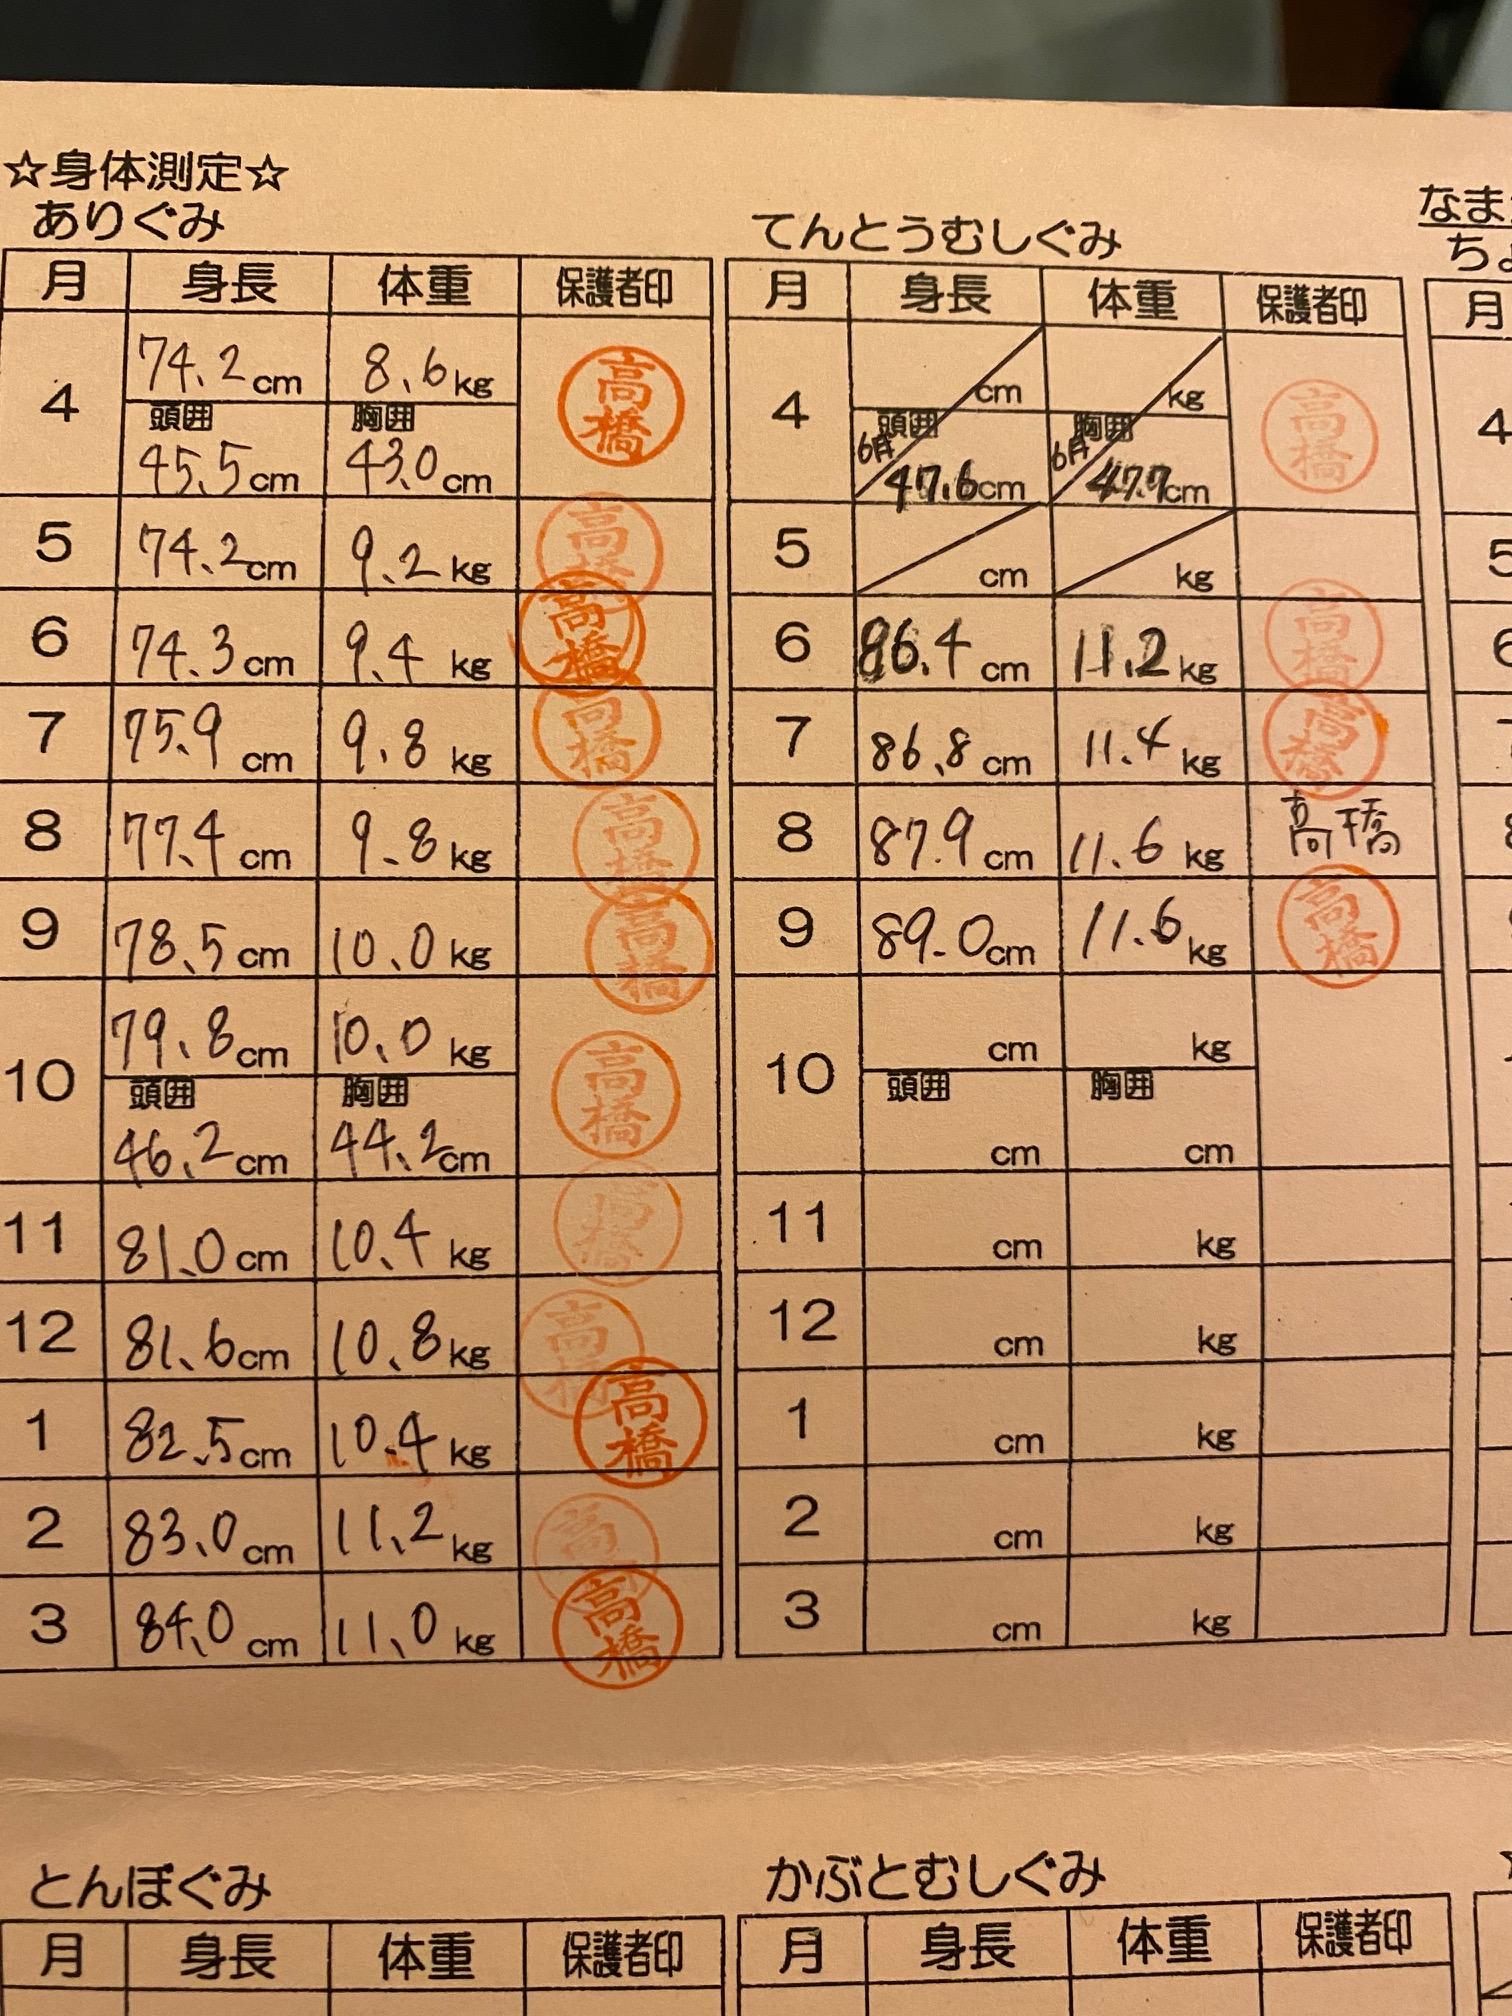 ☆身体測定☆
ありぐみ
月 身長 体重 保護者印
4 74.2cm 8.6kg 高橋
頭囲 胸囲
45.5cm 43.0cm
5 74.2cm 9.2kg 高橋
6 74.3cm 9.4kg 高橋
7 75.9cm 9.8kg 高橋
8 77.4cm 9.8kg 高橋
9 78.5cm 10.0kg 高橋
10 79.8cm 10.0kg 高橋
頭囲 胸囲
46.2cm 44.2cm
11 81.0cm 10.4kg 高橋
12 81.6cm 10.8kg 高橋
1 82.5cm 10.4kg 高橋
2 83.0cm 11.2kg 高
3 84.0cm 11.0kg 高橋
てんとうむしぐみ
月 身長 体重 保護者印
4 cm kg 高橋
頭囲 胸囲
6月 47.6cm 6月 47.7cm
5 cm kg
6 86.4cm 11.2kg 高橋
7 86.8cm 11.4kg 高橋
8 87.9cm 11.6kg 高橋
9 89.0cm 11.6kg 高橋
10 cm kg
頭囲 胸囲
cm cm
11 cm kg
12 cm kg
1 cm kg
2 cm kg
3 cm kg
なま
ち
月
4
5
6
とんぼぐみ
月 身長 体重 保護者印
かぶとむしぐみ
月 身長 体重 保護者印